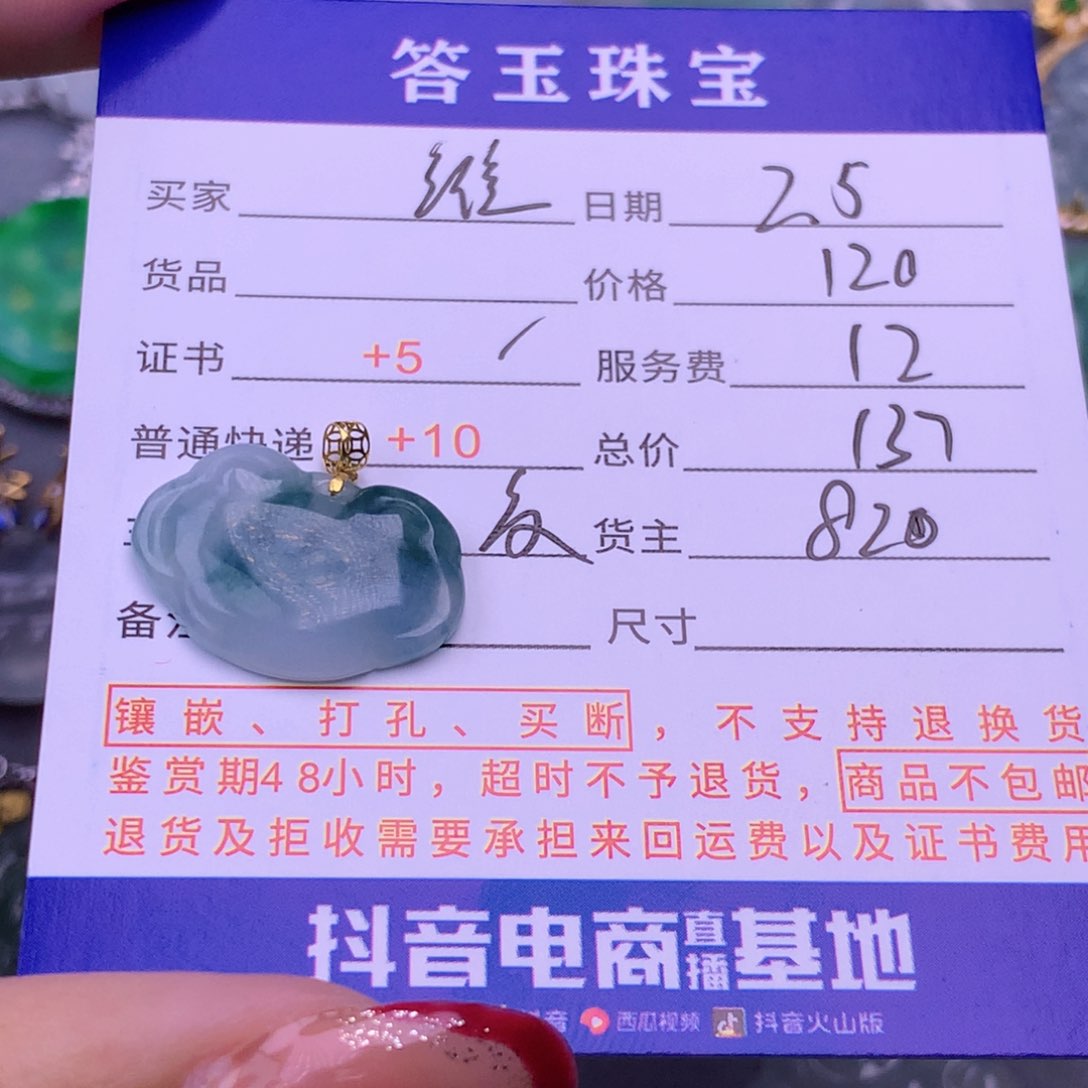 答玉珠宝
买家 维 日期 2.5
货品 价格 120
证书 +5 服务费 12
普通快递 +10 总价 137
货主 820
备注 尺寸
镶嵌、打孔、买断，不支持退换货
鉴赏期48小时，超时不予退货，商品不包邮
退货及拒收需要承担来回运费以及证书费用
抖音电商直播基地
抖音 西瓜视频 抖音火山版